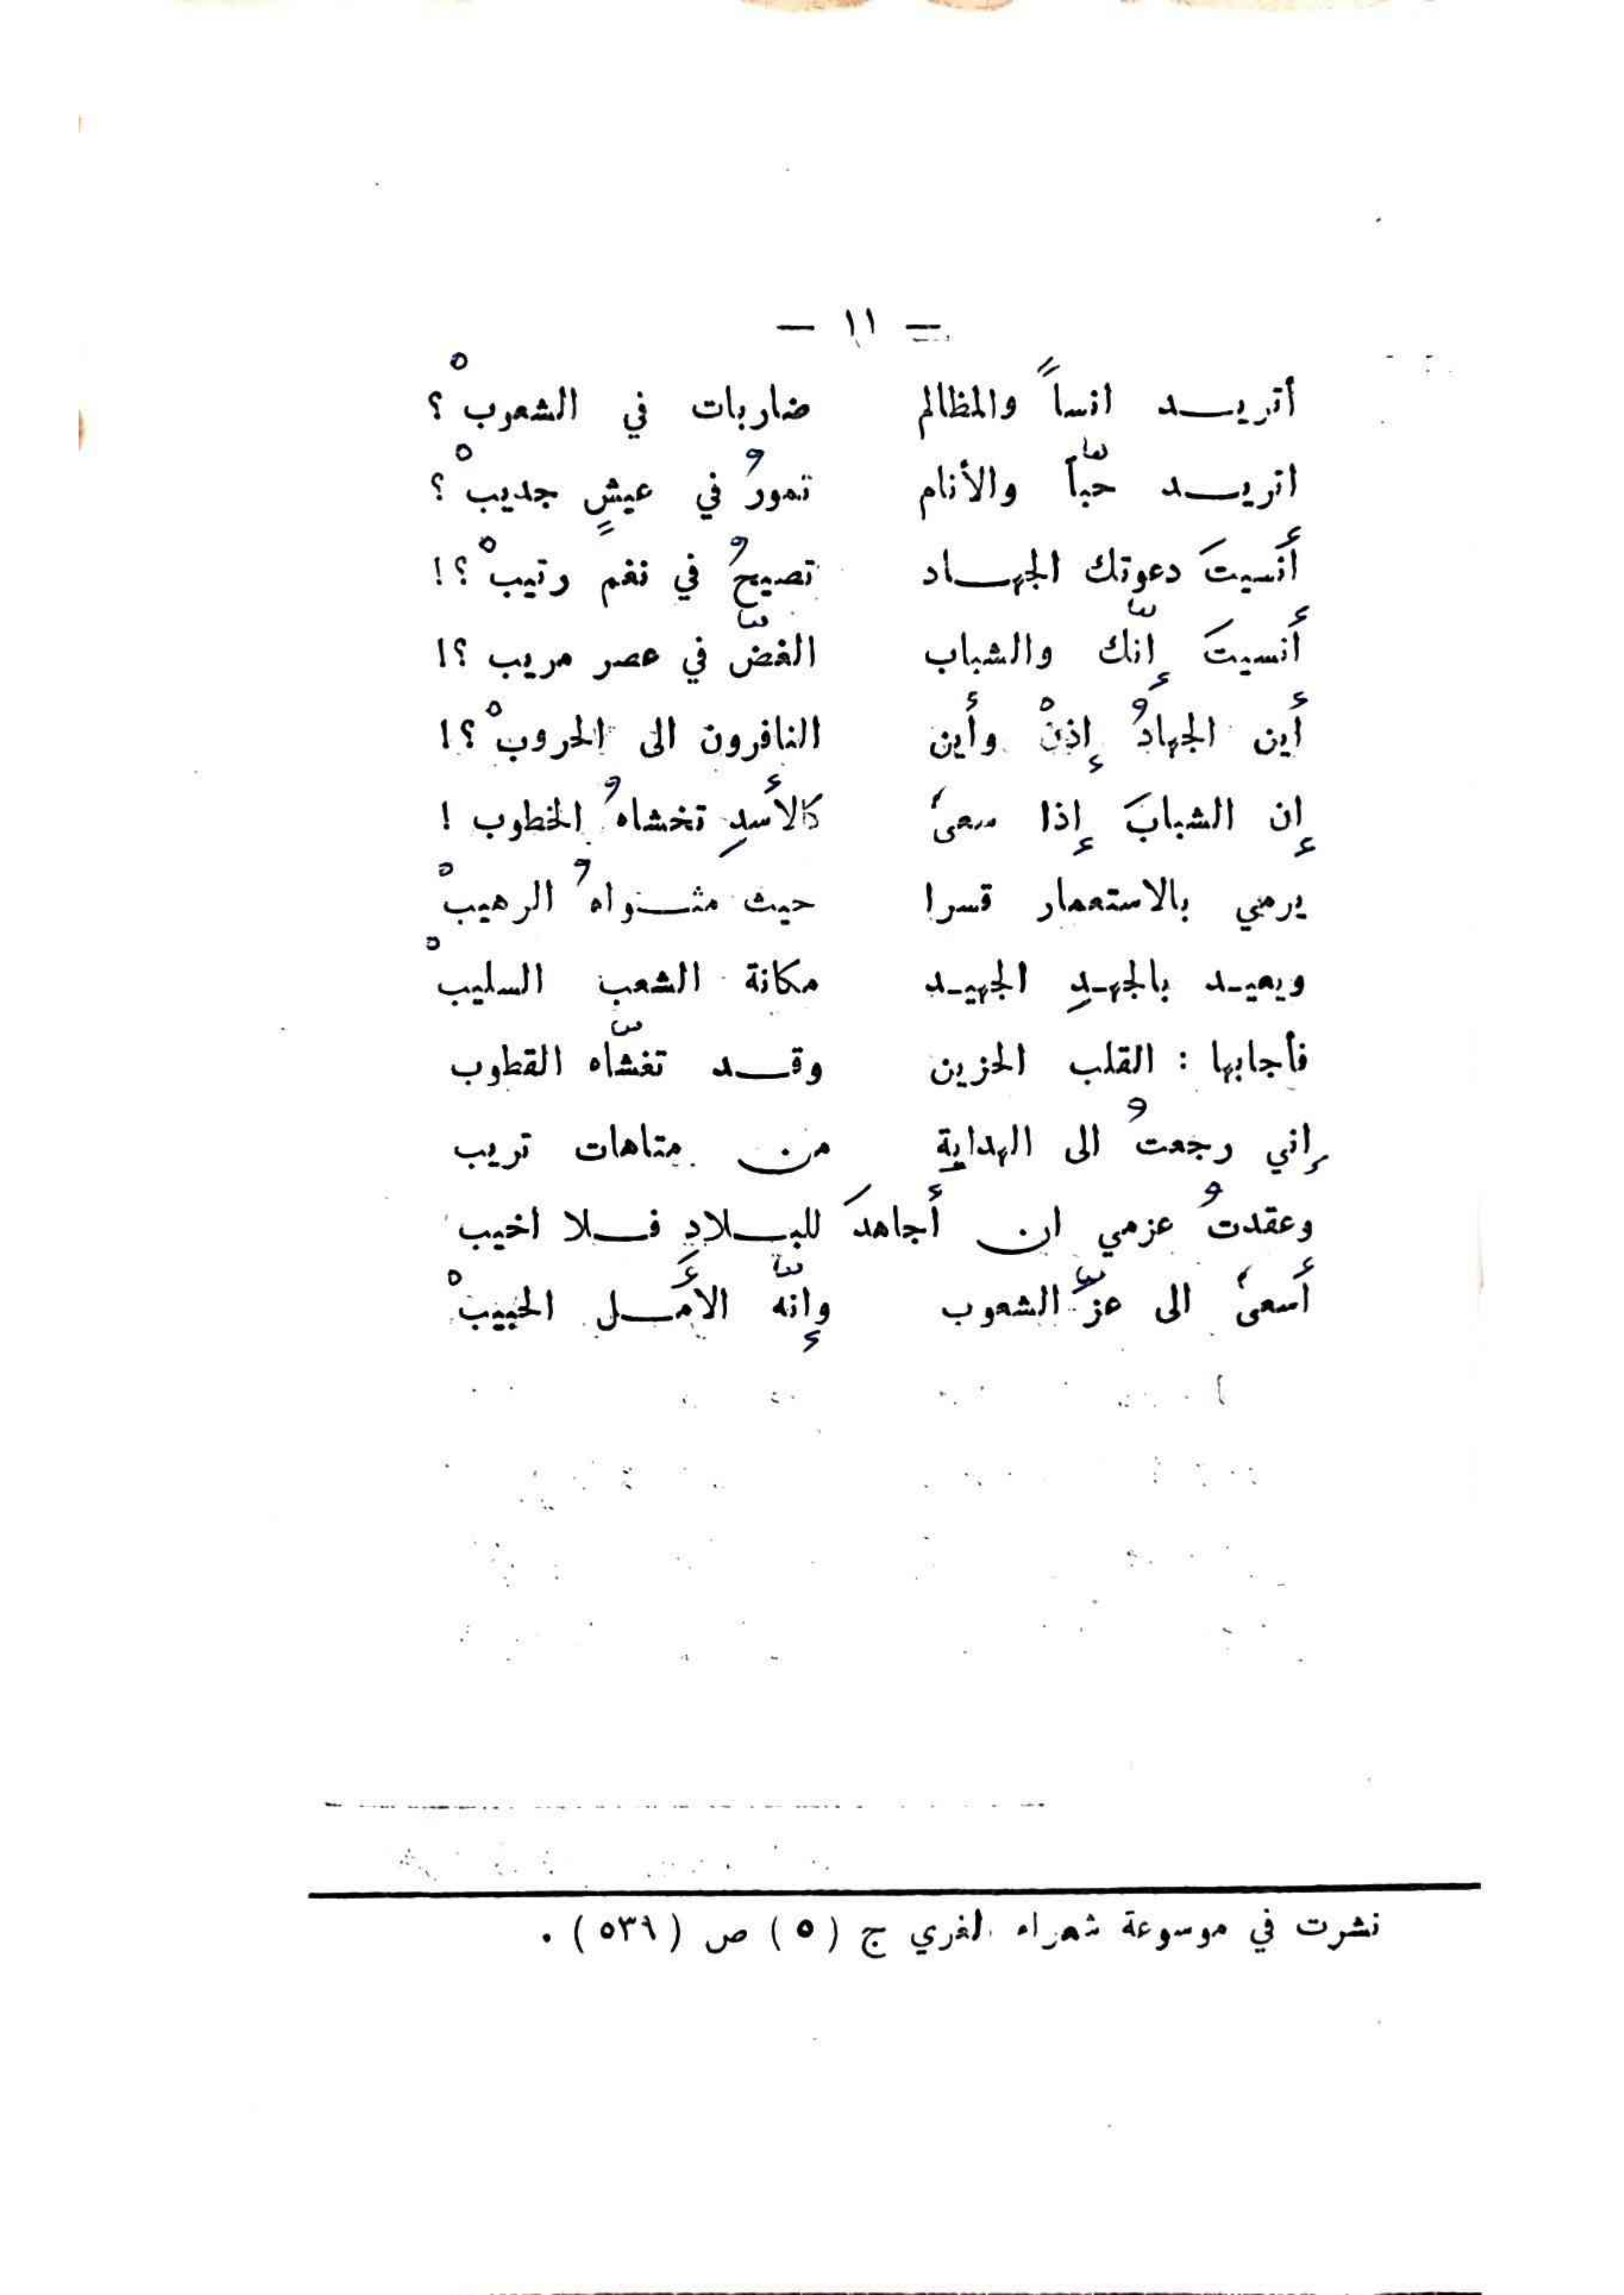 — ١١ —
أتريـــد انساً والمظالم ضاربات في الشعوبْ ؟
اتريـــد حبّاً والأنام تمورُ في عيشٍ جديبْ ؟
أنسيتَ دعوتك الجهـــاد تصيحُ في نغم رتيبْ ؟!
أنسيتَ إنّك والشباب الغضّ في عصر مريب ؟!
أين الجهادُ إذنْ وأين النافرون الى الحروبْ ؟!
إن الشبابَ إذا سعىٰ كالأسدِ تخشاهُ الخطوب !
يرمي بالاستعمار قسرا حيث مثـــواهُ الرهيبْ
ويعيـد بالجهـدِ الجهيـد مكانة الشعب السليبْ
فأجابها : القلب الحزين وقـــد تغشّاه القطوب
إني رجعتُ الى الهداية من متاهات تريب
وعقدتُ عزمي ان أجاهدَ للبـــلادِ فـــلا اخيب
أسعىٰ الى عزّ الشعوب وإنّه الأمـــل الحبيبْ
نشرت في موسوعة شعراء الغري ج (٥) ص (٥٣٩) .